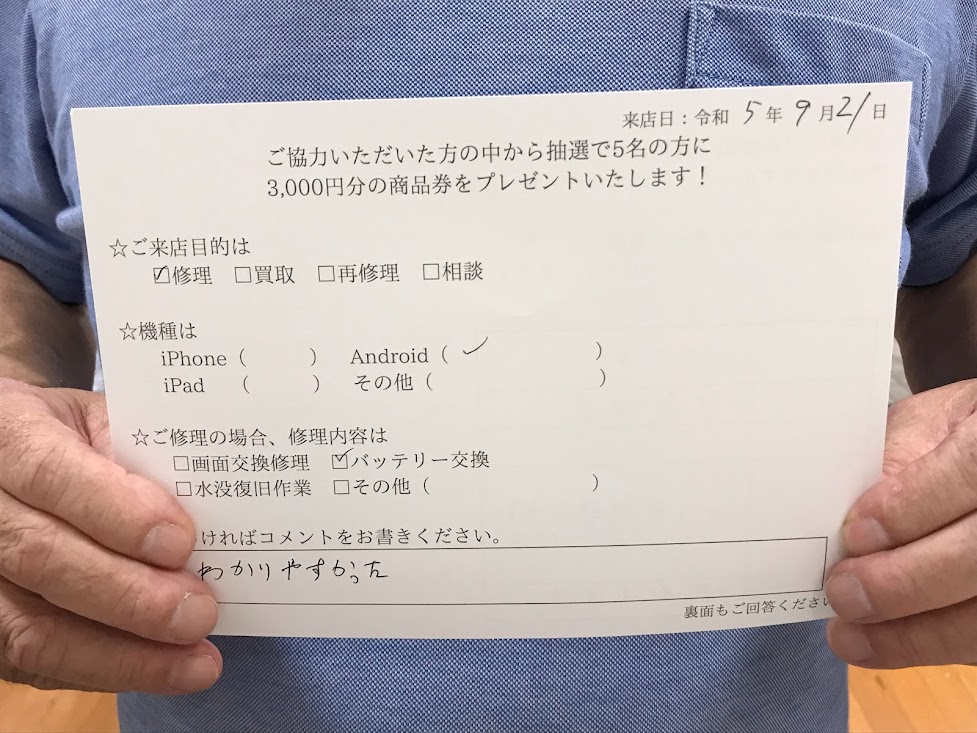 来店日：令和 5年 9月21日
ご協力いただいた方の中から抽選で5名の方に
3,000円分の商品券をプレゼントいたします！
☆ご来店目的は
☑修理 □買取 □再修理 □相談
☆機種は
iPhone（ ） Android（ ✓ ）
iPad （ ） その他（ ）
☆ご修理の場合、修理内容は
□画面交換修理 ☑バッテリー交換
□水没復旧作業 □その他（ ）
ければコメントをお書きください。
わかりやすかった
裏面もご回答ください